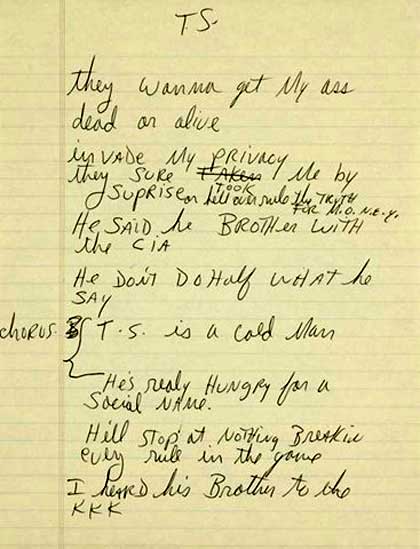 T.S.
they wanna get My ass
dead or alive
inVADE My PRIVACY
they SURE TAKEN Me by
TOOK
SUPRISE or hell over rule the TRUTH
FOR M.O.N.E.Y.
He SAID he BROTHER WITH
the CIA
He Don't Do Half WHAT he
SAY
chorus B T.S. is a cold Man
He's realy Hungry for a
Social NAME.
Hell STOP at NOTHING BREAKIN
every rule in the game
I heard his Brother to the
KKK